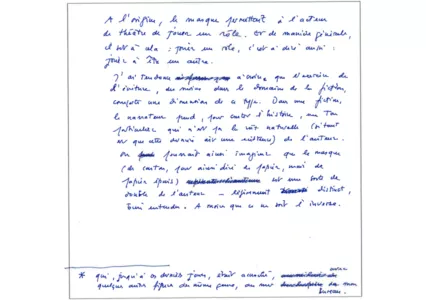 A l'origine, le masque permettait à l'acteur
de théâtre de jouer un rôle. Et de manière générale,
il sert à cela : jouer un rôle, c'est à dire aussi :
jouer à être un autre.
J'ai tendance à croire que l'exercice de
l'écriture, du moins dans le domaine de la fiction,
comporte une dimension de ce type. Dans une fiction,
le narrateur prend, pour conter l'histoire, un ton
particulier qui n'est pas la voix naturelle (si tant
est que cette dernière ait une existence) de l'auteur.
On pourrait ainsi imaginer que le masque
(de carton, pour ainsi dire de papier, mais de
papier épais) est une sorte de
double de l'auteur - légèrement distinct,
bien entendu. A moins que ce ne soit l'inverse.
* qui, jusqu'à ces derniers jours, était accroché, avec
quelques autres figures du même genre, au mur de mon
bureau.